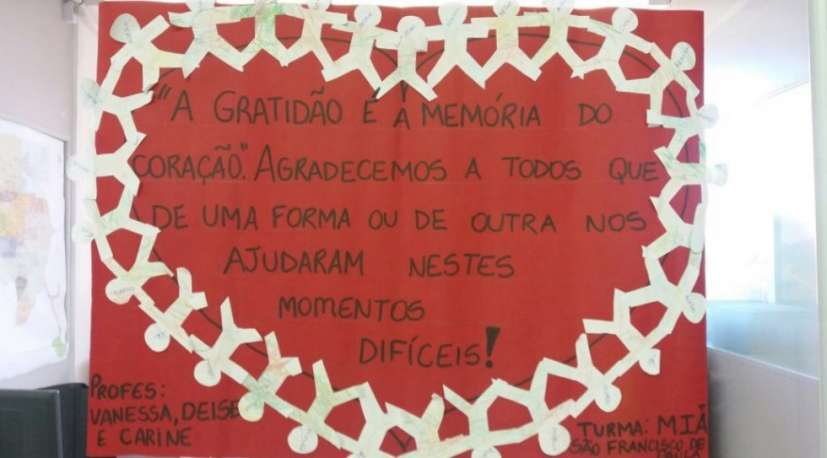 "A GRATIDÃO É A MEMÓRIA DO
CORAÇÃO". AGRADECEMOS A TODOS QUE
DE UMA FORMA OU DE OUTRA NOS
AJUDARAM NESTES
MOMENTOS
DIFÍCEIS!
PROFES:
VANESSA, DEISE
E CARINE
TURMA: MIA
SÃO FRANCISCO DE